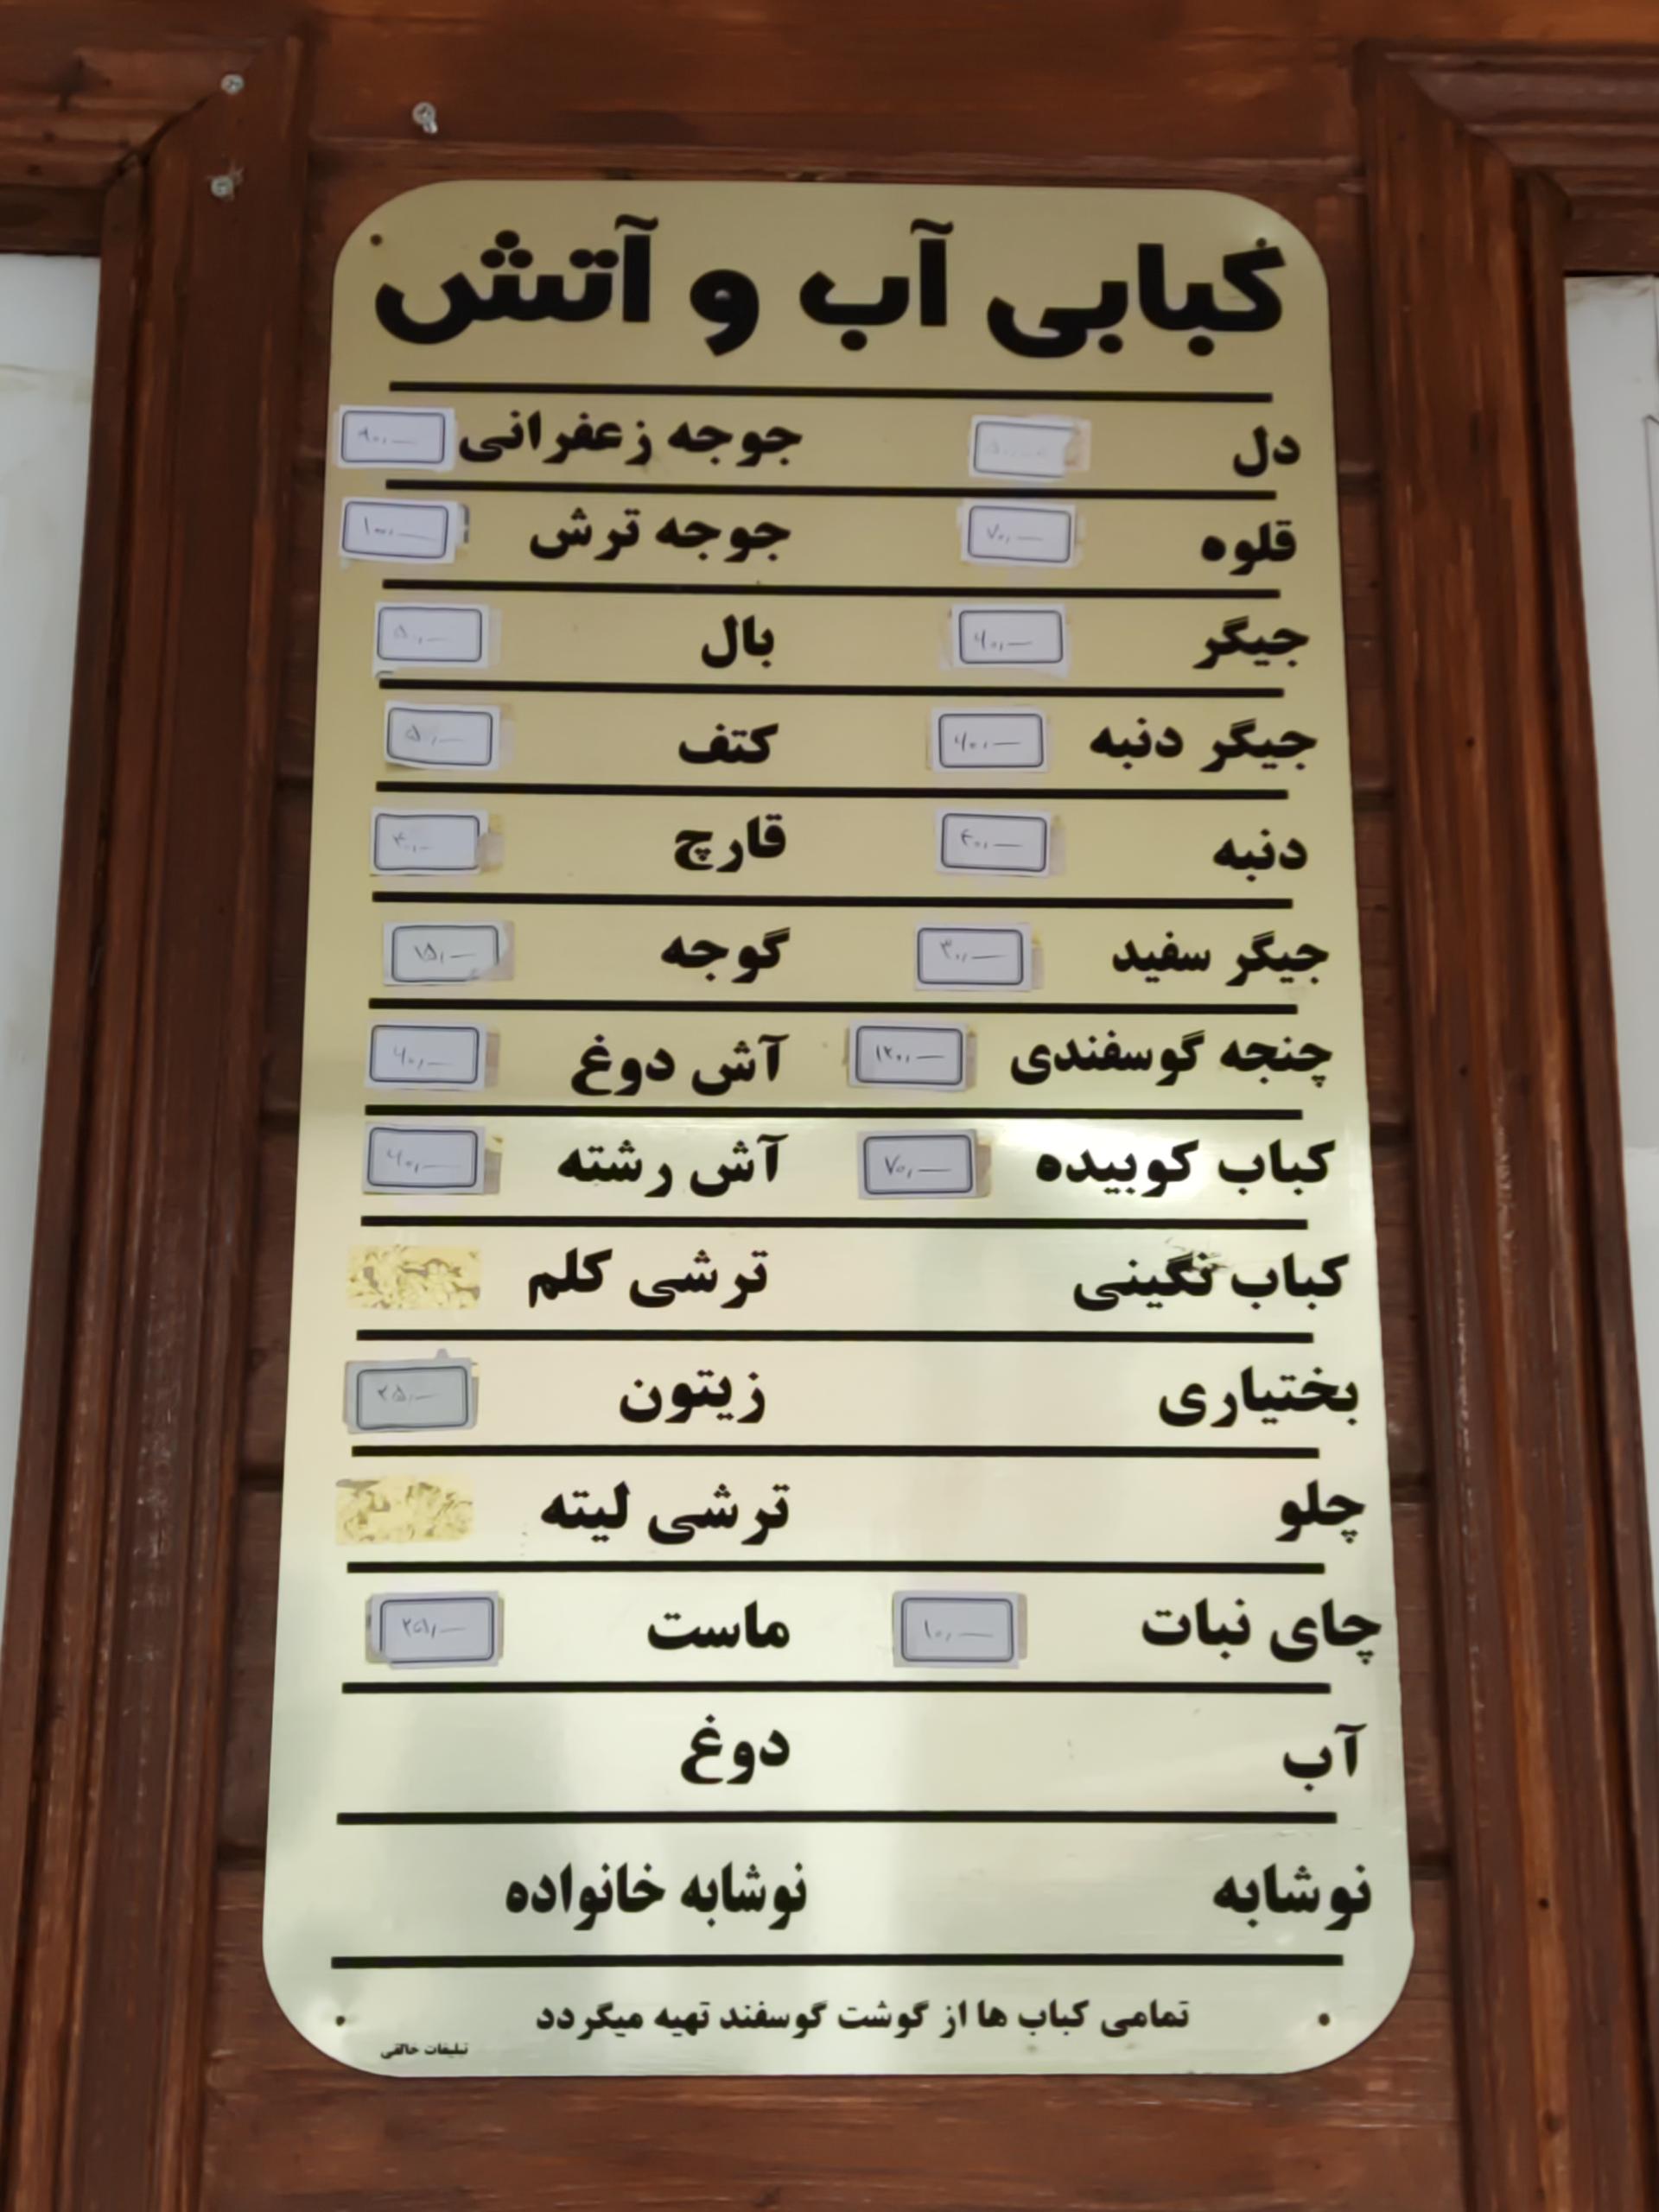 کبابی آب و آتش
دل جوجه زعفرانی
قلوه ۷۰٫— جوجه ترش ۱۰۰٫—
جیگر ۶۰٫— بال ۵۰٫—
جیگر دنبه ۶۰٫— کتف ۵۰٫—
دنبه ۴۰٫— قارچ
جیگر سفید ۳۰٫— گوجه ۱۵٫—
چنجه گوسفندی ۱۲۰٫— آش دوغ ۶۰٫—
کباب کوبیده ۷۰٫— آش رشته ۶۰٫—
کباب نگینی ترشی کلم
بختیاری زیتون ۲۵٫—
چلو ترشی لیته
چای نبات ۱۰٫— ماست ۲۵٫—
آب دوغ
نوشابه نوشابه خانواده
تمامی کباب ها از گوشت گوسفند تهیه میگردد
تبلیغات خالقی